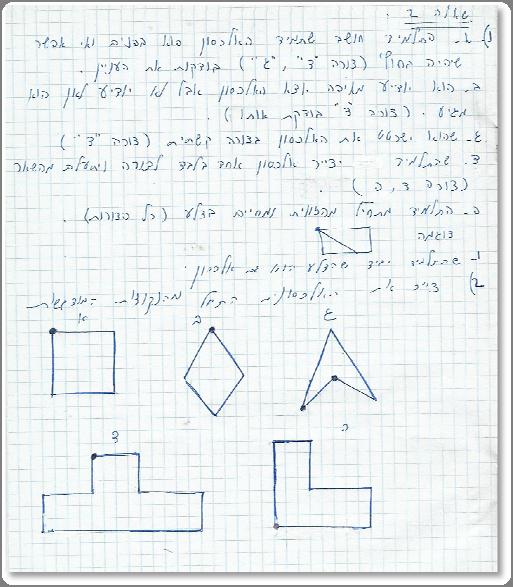 שאלה 2.
1) א. התלמיד חושב שתמיד האלכסון הוא בפנים ואי אפשר
שיהיה בחוץ (צורה "ד", "ג") בודקות את העניין.
ב. הוא יודע מאיפה יוצא האלכסון אבל לא יודע לאן הוא
מגיע. (צורה "ד" בודקת אותו).
ג. שהוא ישרטט את האלכסון בצורה קשתית (צורה "ד")
ד. שהתלמיד יצייר אלכסון אחד בלבד לצורה ויתעלם מהשאר
(צורה ד, ה).
ה. התלמיד מתחיל מהזווית ומסיים בצלע (כל הצורות).
דוגמה
ו. שהתלמיד יגיד שהצלע הוא גם אלכסון.
2) צייר את האלכסונים התחל מהנקודות המודגשות
א ב ג
ד ה